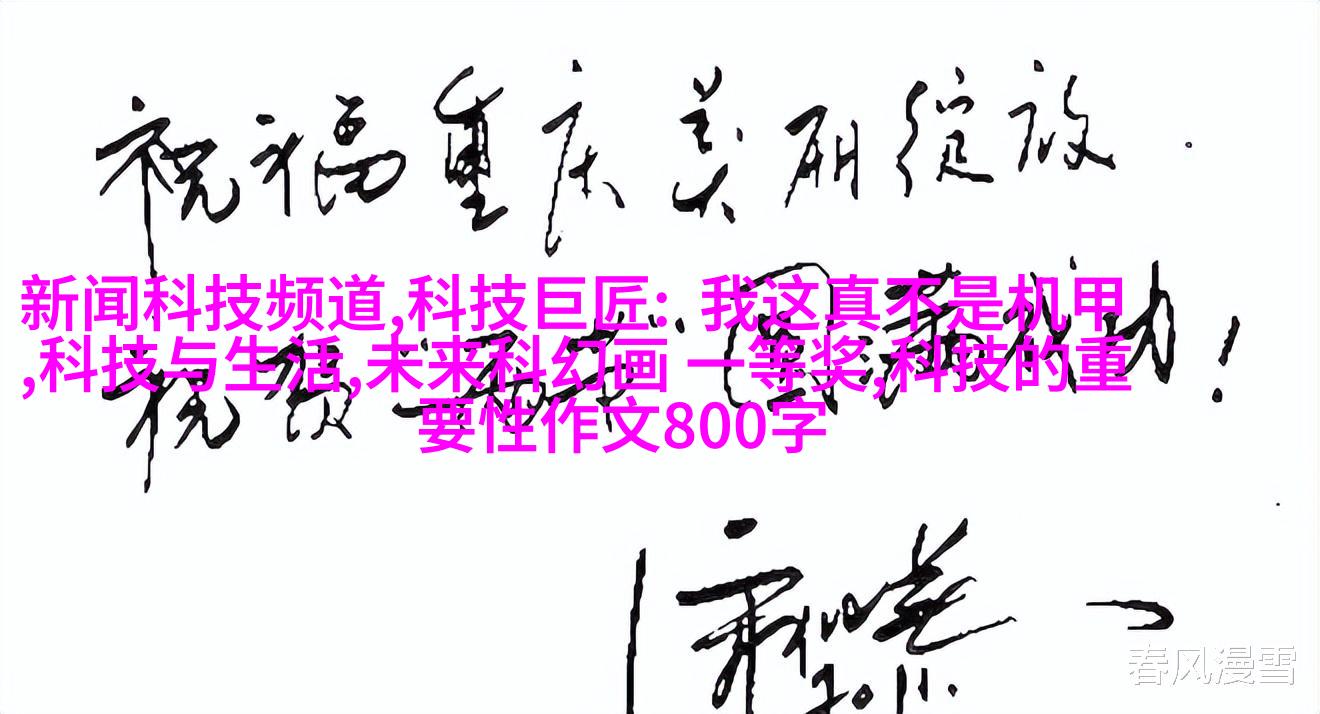 祝福重庆美丽绽放.
新闻科技频道,科技巨匠：我这真不是机甲
,科技与生活,未来科幻画 一等奖,科技的重
要性作文800字
圆满成功!
2011.
春风漫雪